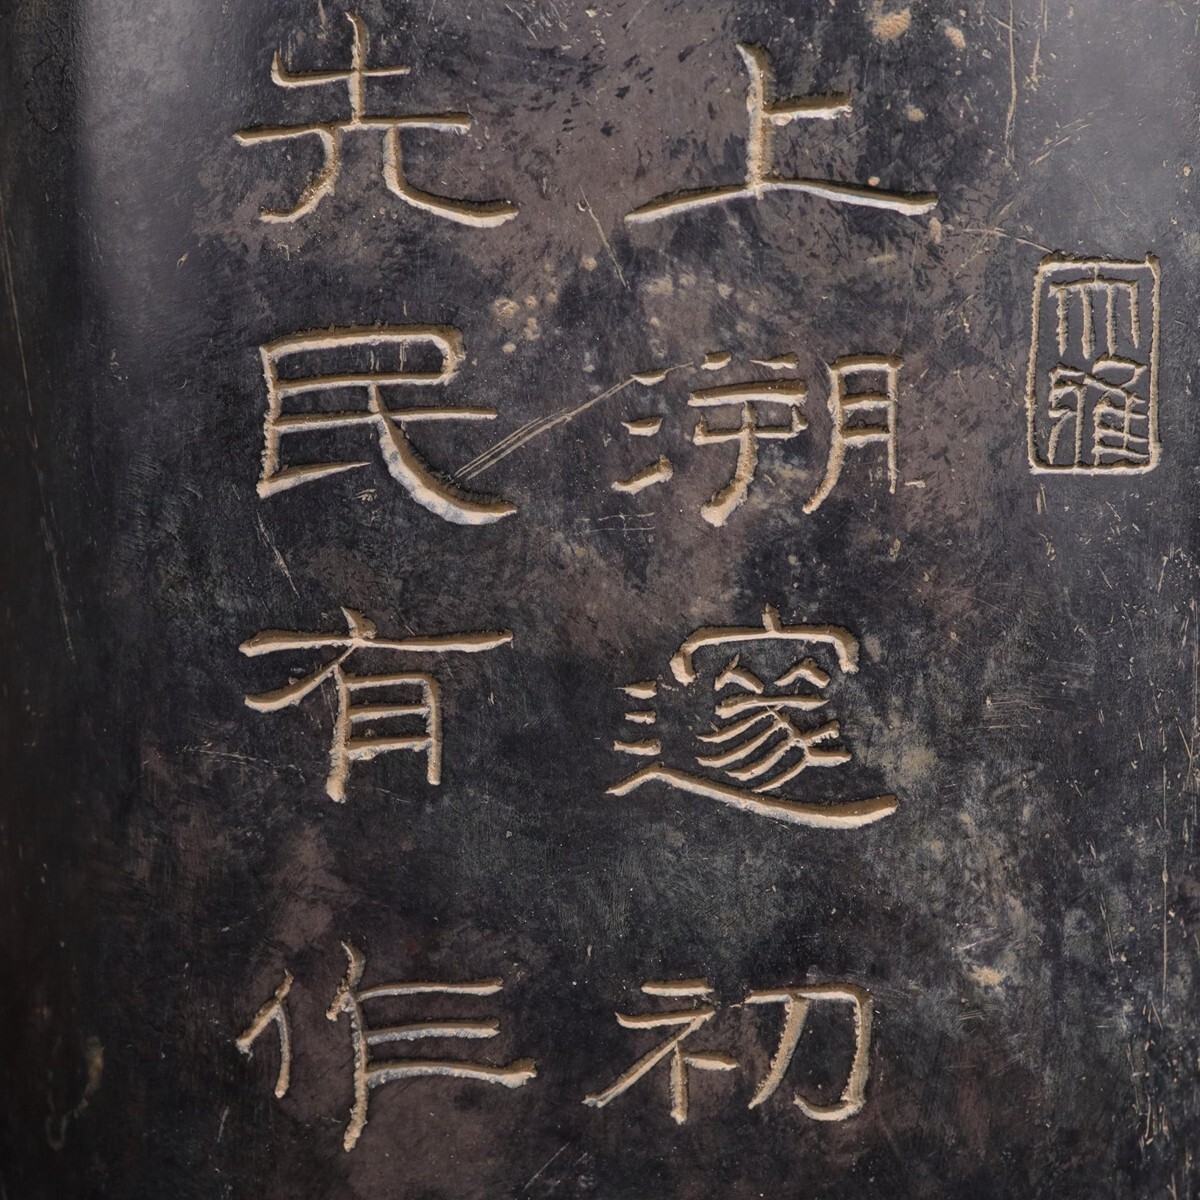 大雅
上溯邃初
先民有作